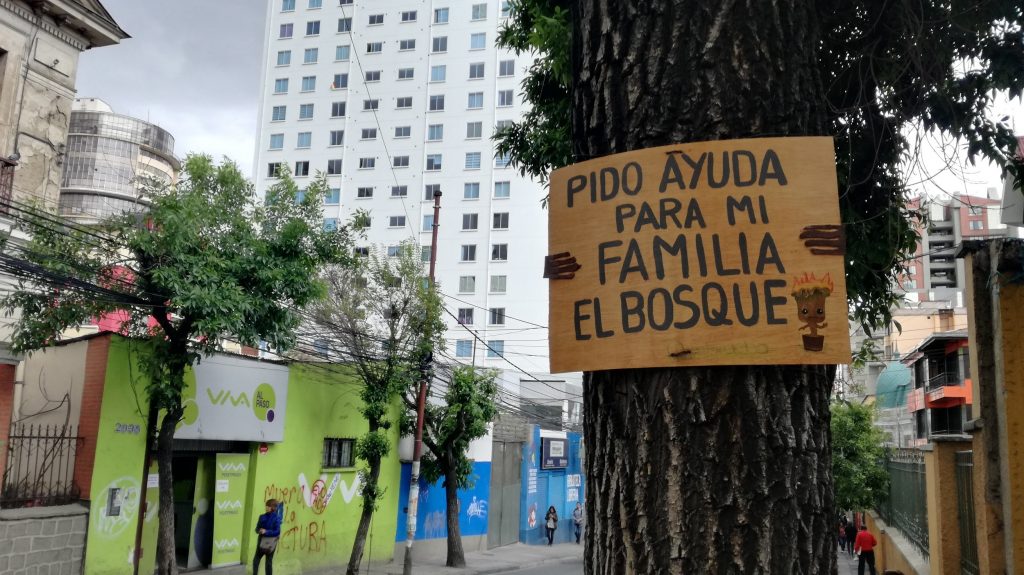 PIDO AYUDA
PARA MI
FAMILIA
EL BOSQUE
VIVA
AL
PASO
2090
VIVA
VIVA
VIVA
MUERA
LA